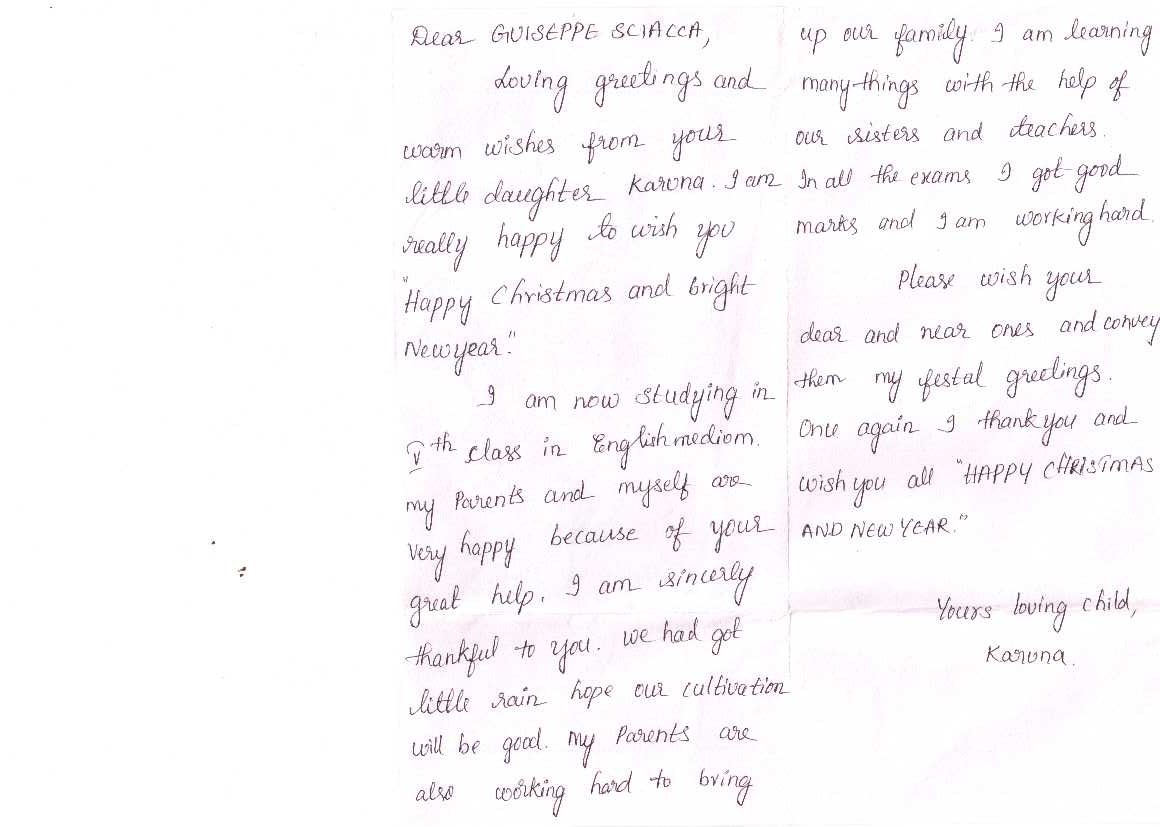 Dear GUISEPPE SCIACCA,
Loving greetings and
warm wishes from your
little daughter Karuna. I am
really happy to wish you
"Happy Christmas and bright
New year."
I am now studying in
Vth class in English mediom.
my Parents and myself are
very happy because of your
great help. I am sincerly
thankful to you. we had got
little rain hope our cultivation
will be good. My Parents are
also working hard to bring
up our family. I am learning
many things with the help of
our sisters and teachers.
In all the exams I got good
marks and I am working hard.
Please wish your
dear and near ones and convey
them my festal greetings.
Once again I thank you and
wish you all "HAPPY CHRISTMAS
AND NEW YEAR."
Yours loving child,
Karuna.